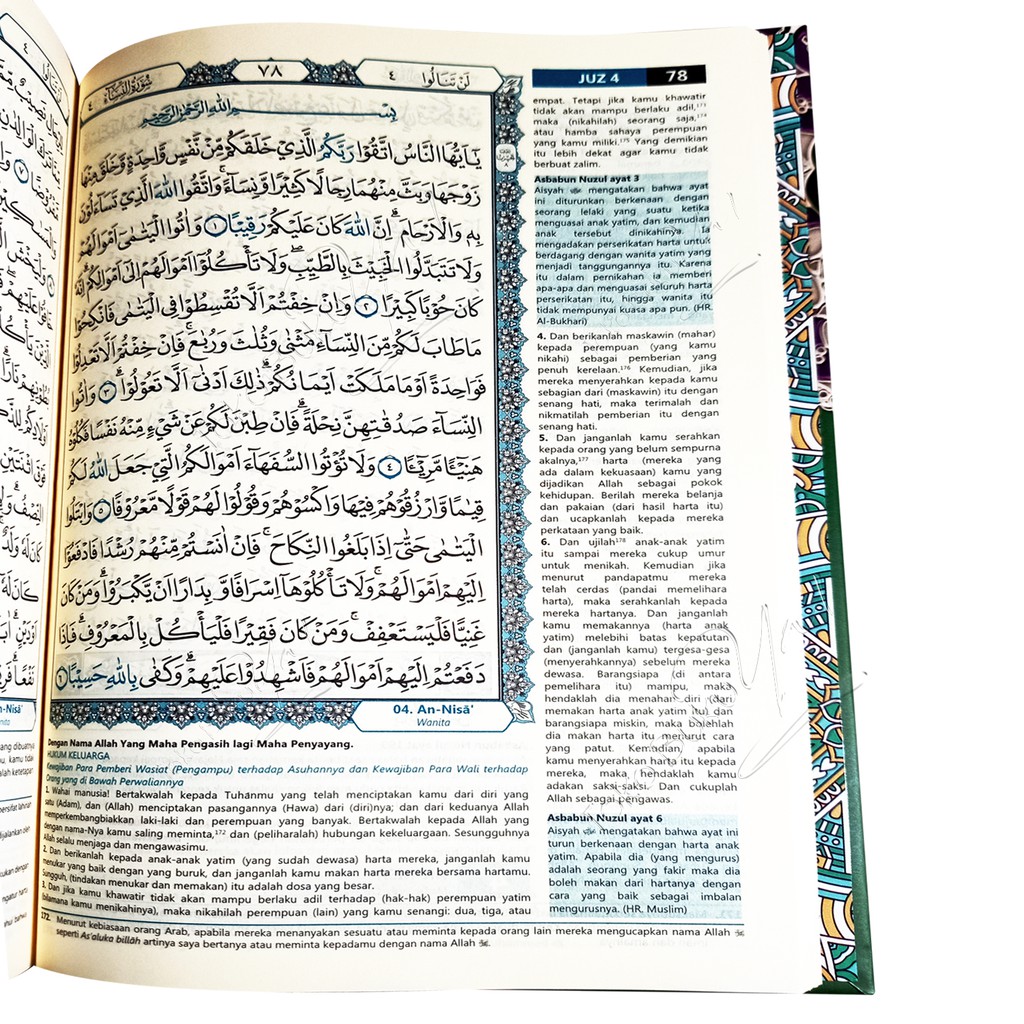 سُوْرَةُ النِّسَاۤءِ ٤
٧٨
لَنْ تَنَالُوا ٤
بِسْمِ اللّٰهِ الرَّحْمٰنِ الرَّحِيْمِ
يٰٓاَيُّهَا النَّاسُ اتَّقُوْا رَبَّكُمُ الَّذِيْ خَلَقَكُمْ مِّنْ نَّفْسٍ وَّاحِدَةٍ وَّخَلَقَ مِنْهَا
زَوْجَهَا وَبَثَّ مِنْهُمَا رِجَالًا كَثِيْرًا وَّنِسَاۤءً ۚ وَاتَّقُوا اللّٰهَ الَّذِيْ تَسَاۤءَلُوْنَ
بِهٖ وَالْاَرْحَامَ ۗ اِنَّ اللّٰهَ كَانَ عَلَيْكُمْ رَقِيْبًا ١ وَاٰتُوا الْيَتٰمٰىٓ اَمْوَالَهُمْ
وَلَا تَتَبَدَّلُوا الْخَبِيْثَ بِالطَّيِّبِ ۖ وَلَا تَأْكُلُوْٓا اَمْوَالَهُمْ اِلٰٓى اَمْوَالِكُمْ ۗ اِنَّهٗ
كَانَ حُوْبًا كَبِيْرًا ٢ وَاِنْ خِفْتُمْ اَلَّا تُقْسِطُوْا فِى الْيَتٰمٰى فَانْكِحُوْا
مَا طَابَ لَكُمْ مِّنَ النِّسَاۤءِ مَثْنٰى وَثُلٰثَ وَرُبٰعَ ۚ فَاِنْ خِفْتُمْ اَلَّا تَعْدِلُوْا
فَوَاحِدَةً اَوْ مَا مَلَكَتْ اَيْمَانُكُمْ ۗ ذٰلِكَ اَدْنٰىٓ اَلَّا تَعُوْلُوْا ۗ ٣ وَاٰتُوا
النِّسَاۤءَ صَدُقٰتِهِنَّ نِحْلَةً ۗ فَاِنْ طِبْنَ لَكُمْ عَنْ شَيْءٍ مِّنْهُ نَفْسًا فَكُلُوْهُ
هَنِيْۤـًٔا مَّرِيْۤـًٔا ٤ وَلَا تُؤْتُوا السُّفَهَاۤءَ اَمْوَالَكُمُ الَّتِيْ جَعَلَ اللّٰهُ لَكُمْ
قِيٰمًا وَّارْزُقُوْهُمْ فِيْهَا وَاكْسُوْهُمْ وَقُوْلُوْا لَهُمْ قَوْلًا مَّعْرُوْفًا ٥ وَابْتَلُوا
الْيَتٰمٰى حَتّٰىٓ اِذَا بَلَغُوا النِّكَاحَ ۚ فَاِنْ اٰنَسْتُمْ مِّنْهُمْ رُشْدًا فَادْفَعُوْٓا
اِلَيْهِمْ اَمْوَالَهُمْ ۚ وَلَا تَأْكُلُوْهَآ اِسْرَافًا وَّبِدَارًا اَنْ يَّكْبَرُوْا ۗ وَمَنْ كَانَ
غَنِيًّا فَلْيَسْتَعْفِفْ ۚ وَمَنْ كَانَ فَقِيْرًا فَلْيَأْكُلْ بِالْمَعْرُوْفِ ۗ فَاِذَا
دَفَعْتُمْ اِلَيْهِمْ اَمْوَالَهُمْ فَاَشْهِدُوْا عَلَيْهِمْ ۗ وَكَفٰى بِاللّٰهِ حَسِيْبًا ٦
04. An-Nisā'
Wanita
Dengan Nama Allah Yang Maha Pengasih lagi Maha Penyayang.
HUKUM KELUARGA
Kewajiban Para Pemberi Wasiat (Pengampu) terhadap Asuhannya dan Kewajiban Para Wali terhadap
Orang yang di Bawah Perwaliannya
1. Wahai manusia! Bertakwalah kepada Tuhanmu yang telah menciptakan kamu dari diri yang
satu (Adam), dan (Allah) menciptakan pasangannya (Hawa) dari (diri)nya; dan dari keduanya Allah
memperkembangbiakkan laki-laki dan perempuan yang banyak. Bertakwalah kepada Allah yang
dengan nama-Nya kamu saling meminta,172 dan (peliharalah) hubungan kekeluargaan. Sesungguhnya
Allah selalu menjaga dan mengawasimu.
2. Dan berikanlah kepada anak-anak yatim (yang sudah dewasa) harta mereka, janganlah kamu
menukar yang baik dengan yang buruk, dan janganlah kamu makan harta mereka bersama hartamu.
Sungguh, (tindakan menukar dan memakan) itu adalah dosa yang besar.
3. Dan jika kamu khawatir tidak akan mampu berlaku adil terhadap (hak-hak) perempuan yatim
(bilamana kamu menikahinya), maka nikahilah perempuan (lain) yang kamu senangi: dua, tiga, atau
JUZ 4 78
empat. Tetapi jika kamu khawatir
tidak akan mampu berlaku adil,173
maka (nikahilah) seorang saja,174
atau hamba sahaya perempuan
yang kamu miliki.175 Yang demikian
itu lebih dekat agar kamu tidak
berbuat zalim.
Asbabun Nuzul ayat 3
Aisyah mengatakan bahwa ayat
ini diturunkan berkenaan dengan
seorang lelaki yang suatu ketika
menguasai anak yatim, dan kemudian
anak tersebut dinikahinya. Ia
mengadakan perserikatan harta untuk
berdagang dengan wanita yatim yang
menjadi tanggungannya itu. Karena
itu dalam pernikahan ia memberi
apa-apa dan menguasai seluruh harta
perserikatan itu, hingga wanita itu
tidak mempunyai kuasa apa pun. (HR.
Al-Bukhari)
4. Dan berikanlah maskawin (mahar)
kepada perempuan (yang kamu
nikahi) sebagai pemberian yang
penuh kerelaan.176 Kemudian, jika
mereka menyerahkan kepada kamu
sebagian dari (maskawin) itu dengan
senang hati, maka terimalah dan
nikmatilah pemberian itu dengan
senang hati.
5. Dan janganlah kamu serahkan
kepada orang yang belum sempurna
akalnya,177 harta (mereka yang
ada dalam kekuasaan) kamu yang
dijadikan Allah sebagai pokok
kehidupan. Berilah mereka belanja
dan pakaian (dari hasil harta itu)
dan ucapkanlah kepada mereka
perkataan yang baik.
6. Dan ujilah178 anak-anak yatim
itu sampai mereka cukup umur
untuk menikah. Kemudian jika
menurut pandapatmu mereka
telah cerdas (pandai memelihara
harta), maka serahkanlah kepada
mereka hartanya. Dan janganlah
kamu memakannya (harta anak
yatim) melebihi batas kepatutan
dan (janganlah kamu) tergesa-gesa
(menyerahkannya) sebelum mereka
dewasa. Barangsiapa (di antara
pemelihara itu) mampu, maka
hendaklah dia menahan diri (dari
memakan harta anak yatim itu) dan
barangsiapa miskin, maka bolehlah
dia makan harta itu menurut cara
yang patut. Kemudian, apabila
kamu menyerahkan harta itu kepada
mereka, maka hendaklah kamu
adakan saksi-saksi. Dan cukuplah
Allah sebagai pengawas.
Asbabun Nuzul ayat 6
Aisyah mengatakan bahwa ayat ini
turun berkenaan dengan harta anak
yatim. Apabila dia (yang mengurus)
adalah seorang yang fakir maka dia
boleh makan dari hartanya dengan
cara yang baik sebagai imbalan
mengurusnya. (HR. Muslim)
172. Menurut kebiasaan orang Arab, apabila mereka menanyakan sesuatu atau meminta kepada orang lain mereka mengucapkan nama Allah
seperti As'aluka billāh artinya saya bertanya atau meminta kepadamu dengan nama Allah